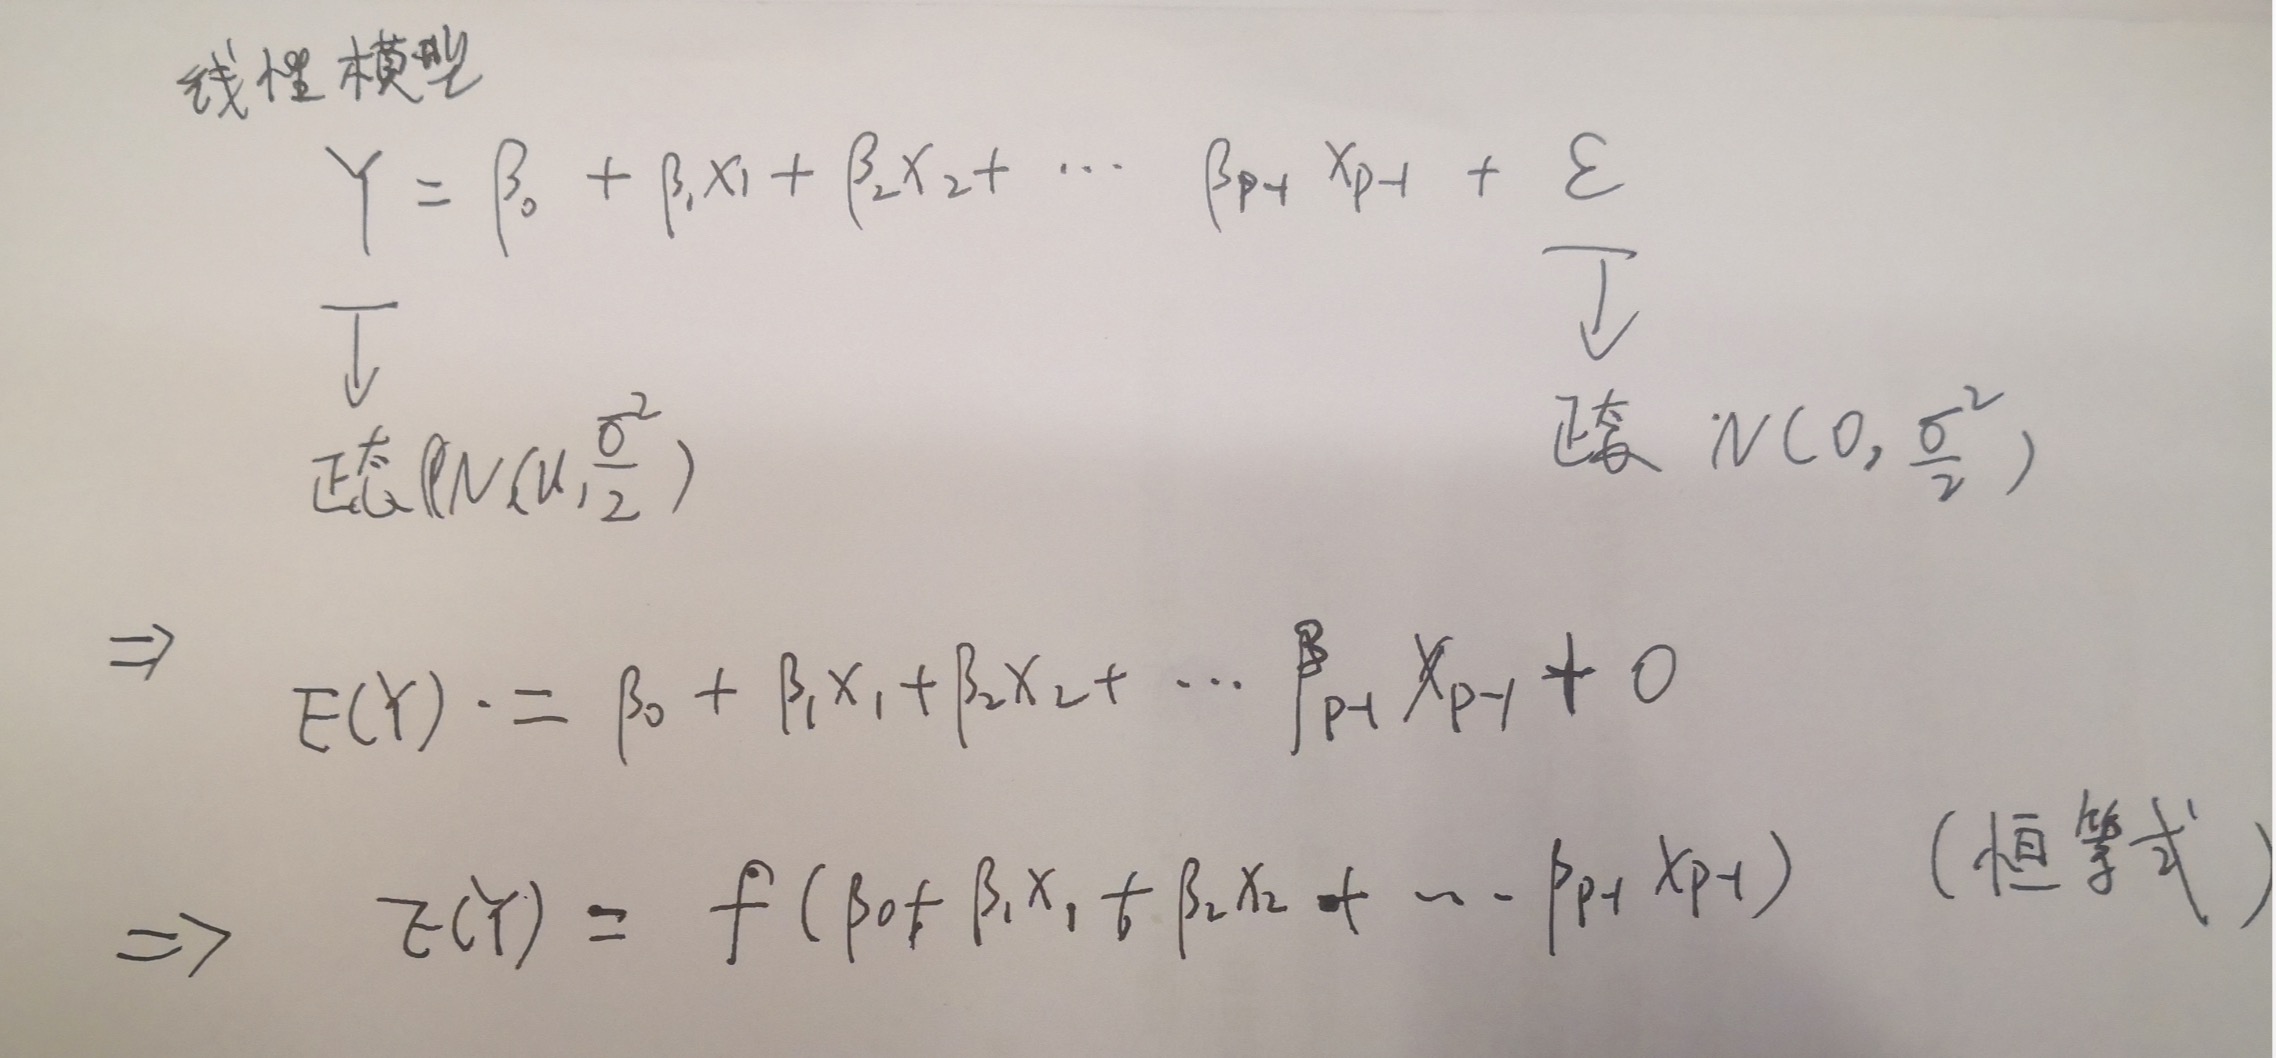 线性模型
Y = β₀ + β₁x₁ + β₂x₂ + ⋯ βₚ₋₁ xₚ₋₁ + ε
正态 N(u, σ²/2) 正态 N(0, σ²/2)
⇒ E(Y) = β₀ + β₁x₁ + β₂x₂ + ⋯ βₚ₋₁ xₚ₋₁ + 0
⇒ E(Y) = f(β₀ + β₁x₁ + β₂x₂ + ⋯ βₚ₋₁ xₚ₋₁) (恒等式)